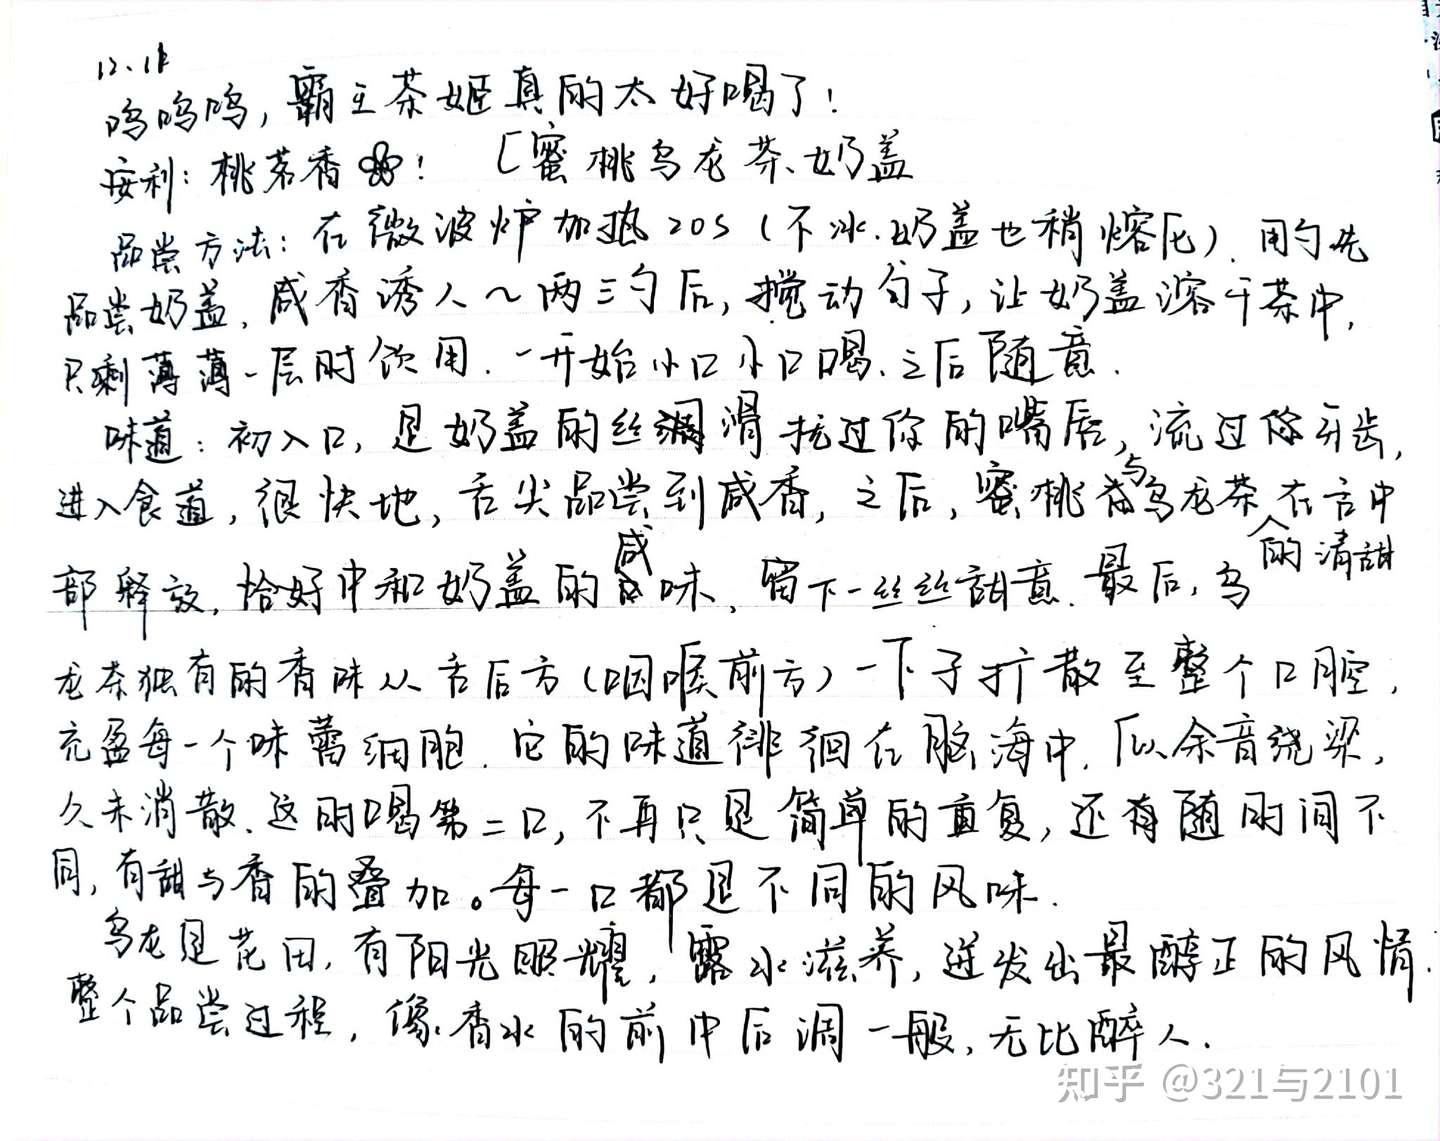 12.18
呜呜呜，霸王茶姬真的太好喝了！
安利：桃茗香！ [蜜桃乌龙茶、奶盖
品尝方法：在微波炉加热20s（不冰.奶盖也稍熔化）.用勺先
品尝奶盖，咸香诱人～两三勺后，搅动勺子，让奶盖溶于茶中，
只剩薄薄一层时饮用.一开始小口小口喝、之后随意.
味道：初入口，是奶盖的丝滑抚过你的嘴唇，流过你牙齿，
进入食道，很快地，舌尖品尝到咸香，之后，蜜桃与乌龙茶的清甜在舌中
部释放，恰好中和奶盖的咸味，留下一丝丝甜意.最后，乌
龙茶独有的香味从舌后方（咽喉前方）一下子扩散至整个口腔，
充盈每一个味蕾细胞.它的味道徘徊在脑海中，似余音绕梁，
久未消散.这时喝第二口，不再只是简单的重复，还有随时间不
同，有甜与香的叠加。每一口都是不同的风味.
乌龙是花田，有阳光照耀，露水滋养，迸发出最醇正的风情.
整个品尝过程，像香水的前中后调一般，无比醉人.
知乎 @321与2101